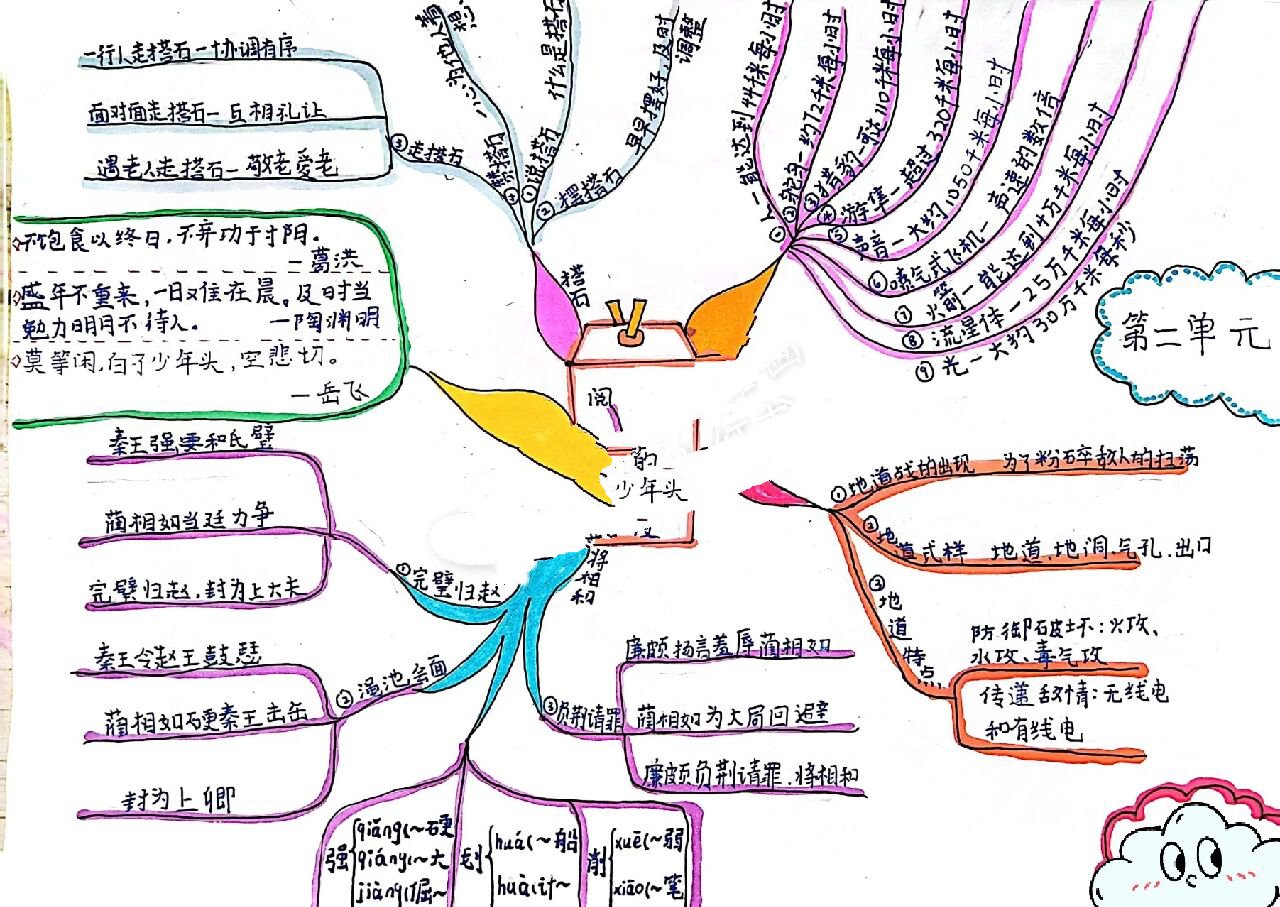 一行人走搭石一协调有序
面对面走搭石一互相礼让
遇老人走搭石一敬老爱老
③走搭石
④赞搭石
心为他人着想
①说搭石
什么是搭石
②摆搭石
早早摆好,及时
调整
搭石
不饱食以终日,不弃功于寸阴。
一葛洪
盛年不重来,一日难在晨。及时当
勉力明月不待人。
一陶渊明
莫等闲,白了少年头,空悲切。
一岳飞
①人一能达到24千米每小时
②鸵鸟一约72千米每小时
③猎豹一可达110千米每小时
④游隼一超过320千米每小时
⑤声音一大约1050千米每小时
⑥喷气式飞机一声速的数倍
⑦火箭一能达到4万千米每小时
⑧流星体一25万千米每小时
⑨光一大约30万千米每秒
第二单元
阅
的
少年头
将相和
①完璧归赵
秦王强要和氏璧
蔺相如当廷力争
完璧归赵,封为上大夫
②渑池会面
秦王令赵王鼓瑟
蔺相如硬秦王击缶
封为上卿
③负荆请罪
廉颇扬言羞辱蔺相如
蔺相如为大局回避
廉颇负荆请罪.将相和
强
qiáng(~硬
qiǎng(~大
jiàng(倔~
划
huá(~船
huà(计~
削
xuē(~弱
xiāo(~笔
①地道战的出现 为了粉碎敌人的扫荡
②地道式样 地道.地洞.气孔.出口
③地道特点
防御破坏:火攻、
水攻、毒气攻
传递敌情:无线电
和有线电